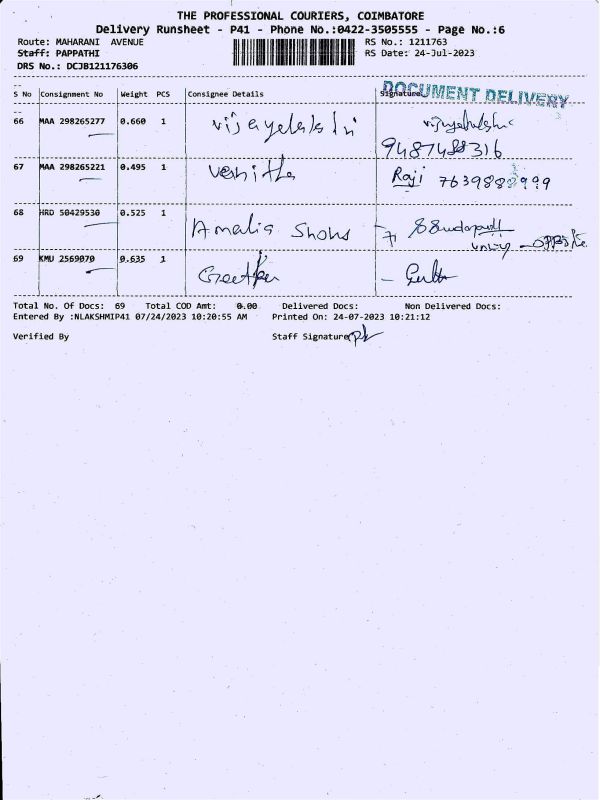 THE PROFESSIONAL COURIERS, COIMBATORE
Delivery Runsheet - P41 - Phone No.:0422-3505555 - Page No.:6
Route: MAHARANI AVENUE RS No.: 1211763
Staff: PAPPATHI RS Date: 24-Jul-2023
DRS No.: DCJB121176306
DOCUMENT DELIVERY
S No Consignment No Weight PCS Consignee Details Signature
66 MAA 298265277 0.660 1
67 MAA 298265221 0.495 1 Raji
68 HRD 50429530 0.525 1
69 KMU 2569070 0.635 1
Total No. Of Docs: 69 Total COD Amt: 0.00 Delivered Docs: Non Delivered Docs:
Entered By :NLAKSHMIP41 07/24/2023 10:20:55 AM Printed On: 24-07-2023 10:21:12
Verified By Staff Signature